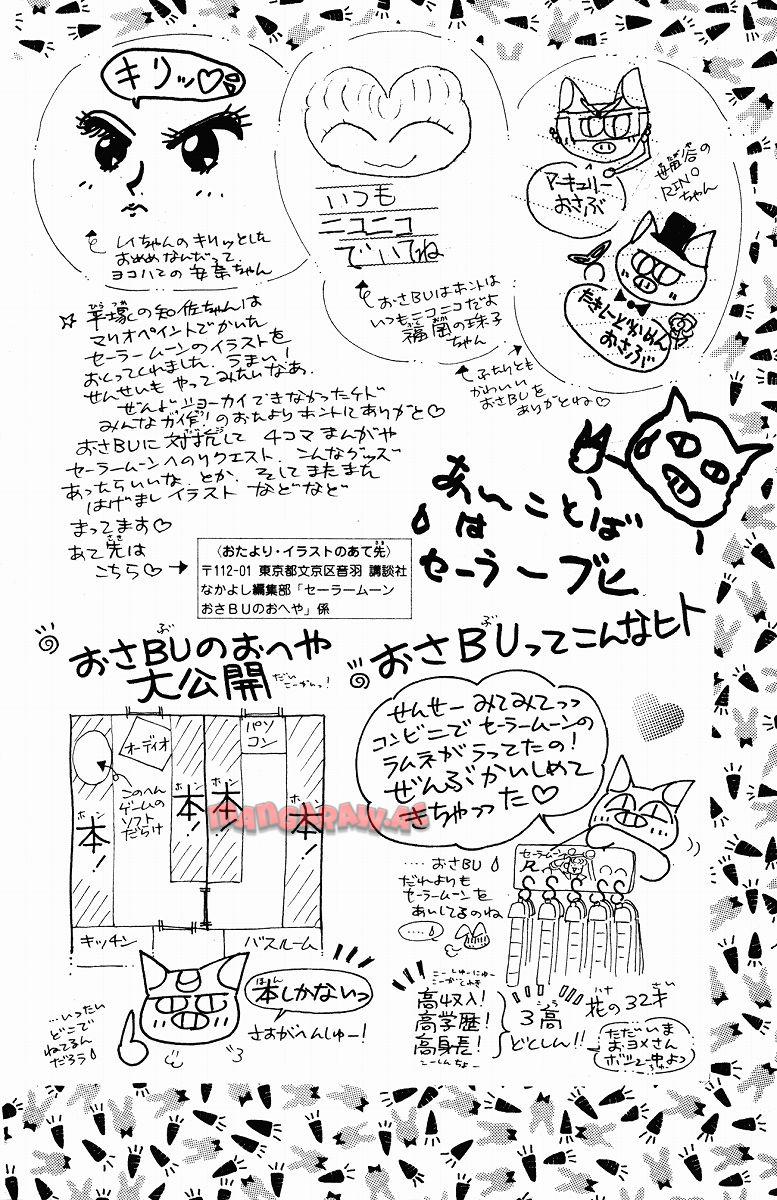 キリッ♡
レイちゃんのキリッとした
おめめなんだって
ヨコハマの
ちゃん
いつも
ニコニコ
でいてね
おさBUはホントは
いつもニコニコだよ
福岡の珠子
ちゃん
マーキュリー
おさぶ
世田谷の
RINO
ちゃん
たきしーどかめん
おさぶ
ふたりとも
かわいい
おさBUを
ありがとね♡
☆平塚の知佐ちゃんは
マリオペイントでかいた
セーラームーンのイラストを
おくってくれました。うまい!
せんせいも やってみたいなあ。
ぜんぶ ショーカイできなかったケド
みんな力作のおたよりホントにありがと♡
おさBUに対抗して 4コマまんがや
セーラームーンへのリクエスト、こんなグッズ
あったらいいな、とか、そしてまたまた
はげましイラスト などなど
まってます♡
あて先は
こちら♡→
〈おたより・イラストのあて先〉
〒112-01 東京都文京区音羽 講談社
なかよし編集部「セーラームーン
おさBUのおへや」係
あいことば
は
セーラーブヒ
おさBUのおへや
大公開
だいこーかいっ!
オーディオ
パソ
コン
このへん
ゲームの
ソフト
だらけ
本!
本!
本!
本!
キッチン
バスルーム
…いったい
どこで
ねてるん
だろう
本しかないっ
さすがへんしゅー!
おさBUってこんなヒト
せんせー みてみてっっ
コンビニで セーラームーンの
ラムネがうってたの!
ぜんぶかいしめて
きちゃった♡
……おさBU
だれよりも
セーラームーンを
あいしてるのね
……
セーラームーン
高収入!
高学歴!
高身長!
3高
どくしん!!
花の32才
ただいま
およメさん
ボシュー中よっ
MANGARAW.AC